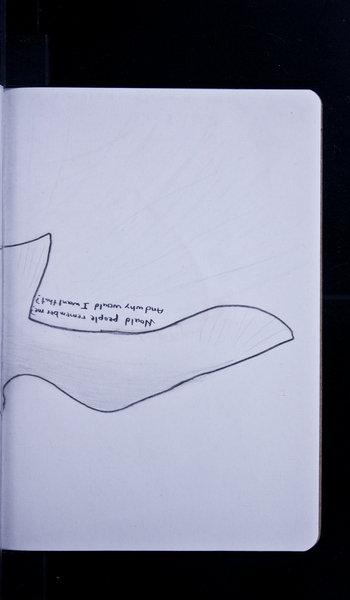 Would people remember me?
And why would I want that?